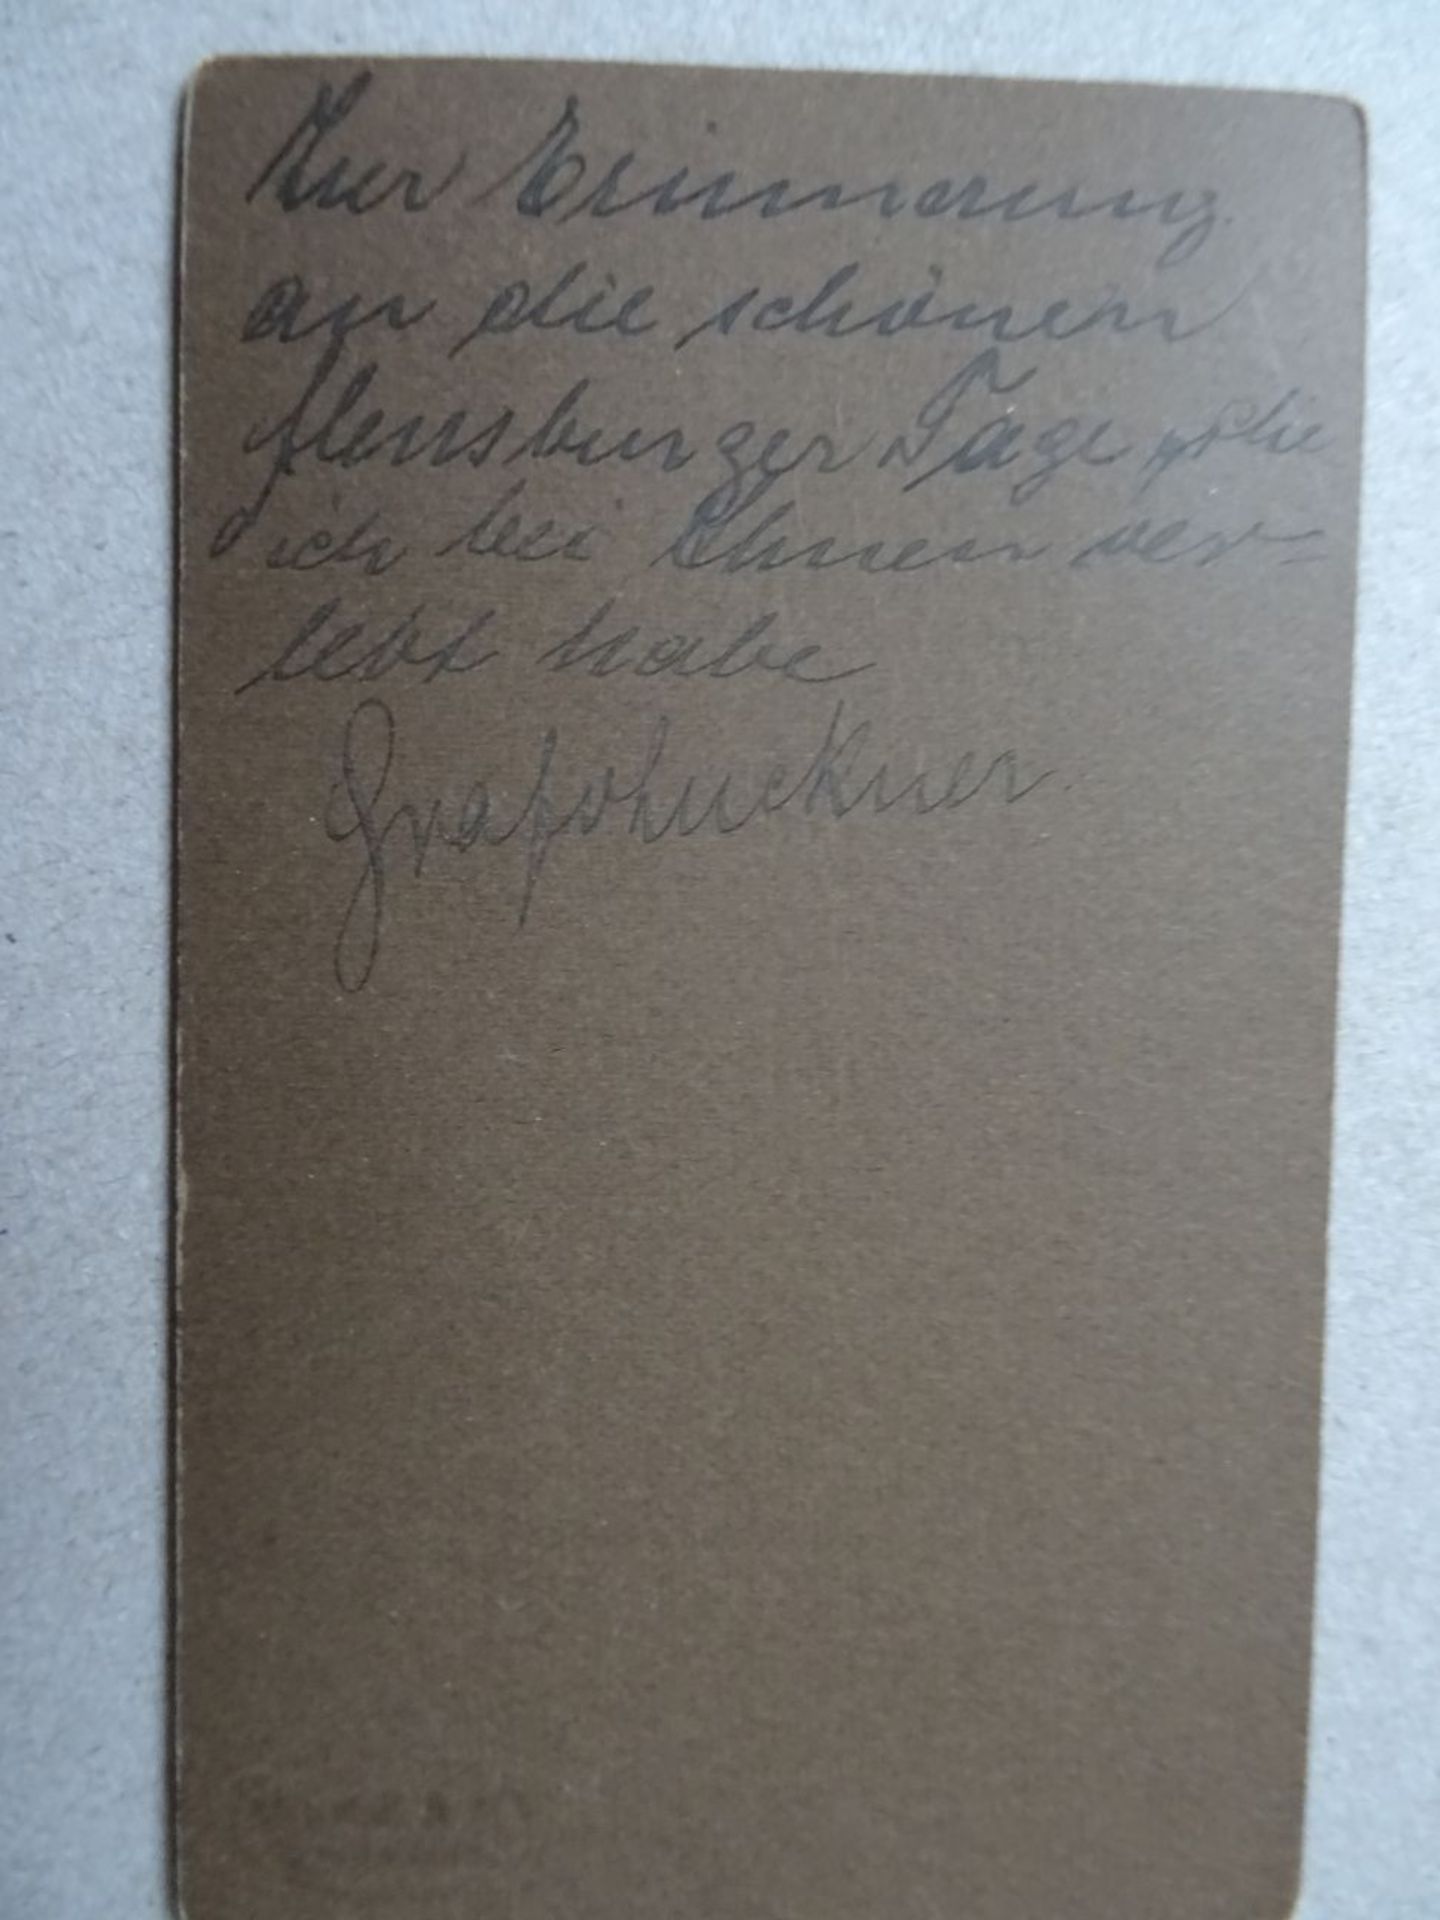 Zur Erinnerung
an die schönen
flensburger Tage, die
ich bei Ihnen ver=
lebt habe
Graf Luckner.